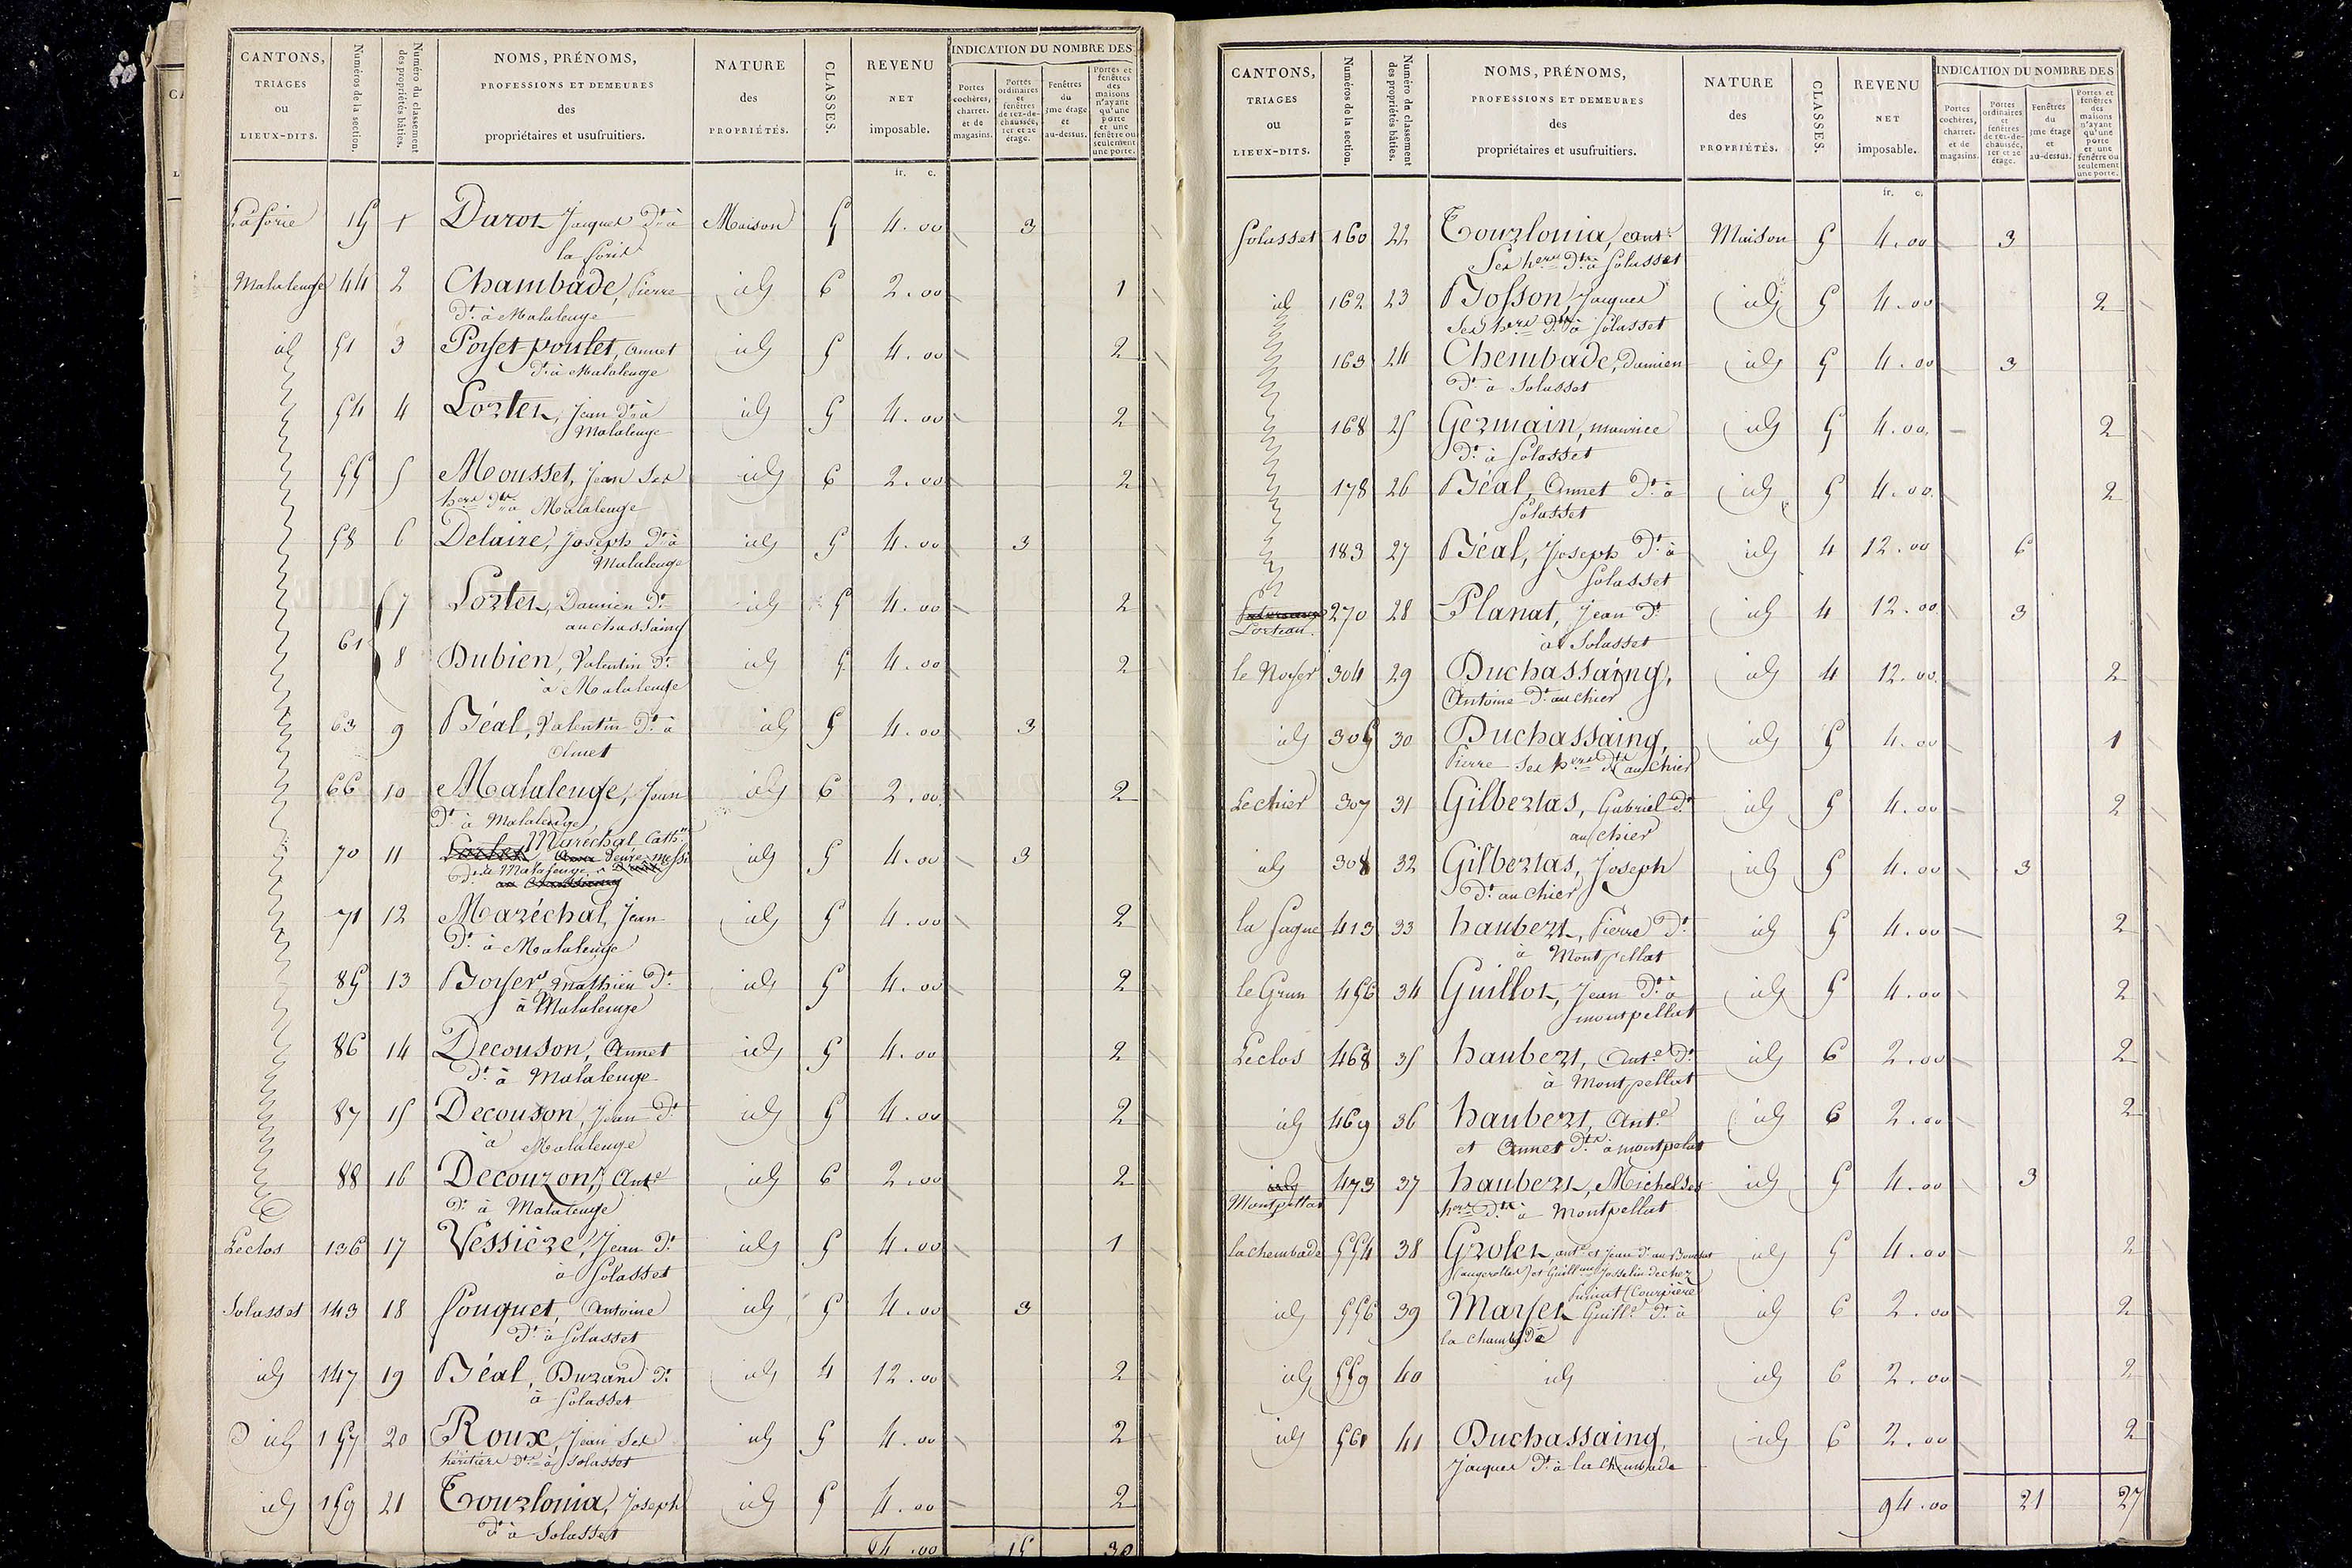 CANTONS, TRIAGES ou LIEUX-DITS. Numéros de la section. Numéro du classement des propriétés bâties. NOMS, PRÉNOMS, PROFESSIONS ET DEMEURES des propriétaires et usufruitiers. NATURE des PROPRIÉTÉS. CLASSES. REVENU NET imposable. INDICATION DU NOMBRE DES
Portes cochères, charret. et de magasins. Portes ordinaires et fenêtres de rez-de-chaussée, 1er et 2e étage. Fenêtres du 3me étage et au-dessus. Portes et fenêtres des maisons n'ayant qu'une porte et une fenêtre ou seulement une porte.
fr. c.
La forie 15 1 Darot Jacques Dt à Maison 5 4.00 3
la forie
Malaleuge 44 2 Chambade, Pierre id 6 2.00 1
Dt à Malaleuge
id 51 3 Poyet-poulet, Annet id 5 4.00 2
Dt à Malaleuge
54 4 Lortet, Jean Dt à id 5 4.00 2
Malaleuge
55 5 Mousset, Jean Ses id 6 2.00 2
hers Dts à Malaleuge
58 6 Delaire, Joseph Dt à id 5 4.00 3
Malaleuge
7 Lortet, Damien Dt id 5 4.00 2
au chassaing
61
8 Dubien, Valentin Dt id 5 4.00 2
à Malaleuge
63 9 Béal, Valentin Dt à id 5 4.00 3
Olmet
66 10 Malaleuge, Jean id 6 2.00 2
Dt à Malaleuge
70 11 Lortet Maréchal Cathne id 5 4.00 3
Dt à Malaleuge
71 12 Maréchal, Jean id 5 4.00 2
Dt à Malaleuge
85 13 Boyer, Mathieu Dt id 5 4.00 2
à Malaleuge
86 14 Decouson, Annet id 5 4.00 2
Dt à Malaleuge
87 15 Decouson, Jean Dt id 5 4.00 2
à Malaleuge
88 16 Decouzon, Ante id 6 2.00 2
Dt à Malaleuge
Leclos 136 17 Vessière, Jean Dt id 5 4.00 1
à Solasset
Solasset 143 18 Fouquet, Antoine id 5 4.00 3
Dt à Solasset
id 147 19 Béal, Durand Dt id 4 12.00 2
à Solasset
id 157 20 Roux, Jean Ses id 5 4.00 2
héritiers Dts à Solasset
id 159 21 Tourlonia, Joseph id 5 4.00 2
Dt à Solasset
84.00 15 30
CANTONS, TRIAGES ou LIEUX-DITS. Numéros de la section. Numéro du classement des propriétés bâties. NOMS, PRÉNOMS, PROFESSIONS ET DEMEURES des propriétaires et usufruitiers. NATURE des PROPRIÉTÉS. CLASSES. REVENU NET imposable. INDICATION DU NOMBRE DES
Portes cochères, charret. et de magasins. Portes ordinaires et fenêtres de rez-de-chaussée, 1er et 2e étage. Fenêtres du 3me étage et au-dessus. Portes et fenêtres des maisons n'ayant qu'une porte et une fenêtre ou seulement une porte.
fr. c.
Solasset 160 22 Tourlonia, ante Maison 5 4.00 3
Ses hers Dts à Solasset
id 162 23 Bosson, Jacques id 5 4.00 2
Ses hers Dts à Solasset
163 24 Chembade, Damien id 5 4.00 3
Dt à Solasset
168 25 Germain, maurice id 5 4.00 2
Dt à Solasset
178 26 Béal, Annet Dt à id 5 4.00 2
Solasset
183 27 Béal, Joseph Dt à id 4 12.00 6
Solasset
270 28 Planat, Jean Dt id 4 12.00 3
Lorteau. à Solasset
le Noyer 304 29 Duchassaing, id 4 12.00 2
Antoine Dt au chier
id 305 30 Duchassaing, id 5 4.00 1
Pierre Ses hers Dts au chier
Le chier 307 31 Gilbertas, Gabriel Dt id 5 4.00 2
au chier
id 308 32 Gilbertas, Joseph id 5 4.00 3
Dt au chier
la fagne 413 33 haubert, Pierre Dt id 5 4.00 2
à Montpellat
le Grun 456 34 Guillot, Jean Dt à id 5 4.00 2
montpellat
Leclos 468 35 haubert, Ante Dt id 6 2.00 2
à Montpellat
id 469 36 haubert, Ante id 6 2.00 2
et Annet Dts à montpelat
id 473 37 haubert, Michel Ses id 5 4.00 3
Montpellat hers Dts à Montpellat
lachembade 554 38 Grolet, ante et Jean Dt au Bouchat id 5 4.00 2
(augerolles) et Guillme Josselin de chez
(Courpière
id 556 39 Mayet Guille Dt à id 6 2.00 2
la chambade
id 559 40 id id 6 2.00 2
id 561 41 Duchassaing, id 6 2.00 2
Jacques Dt à la Chembade
94.00 21 27